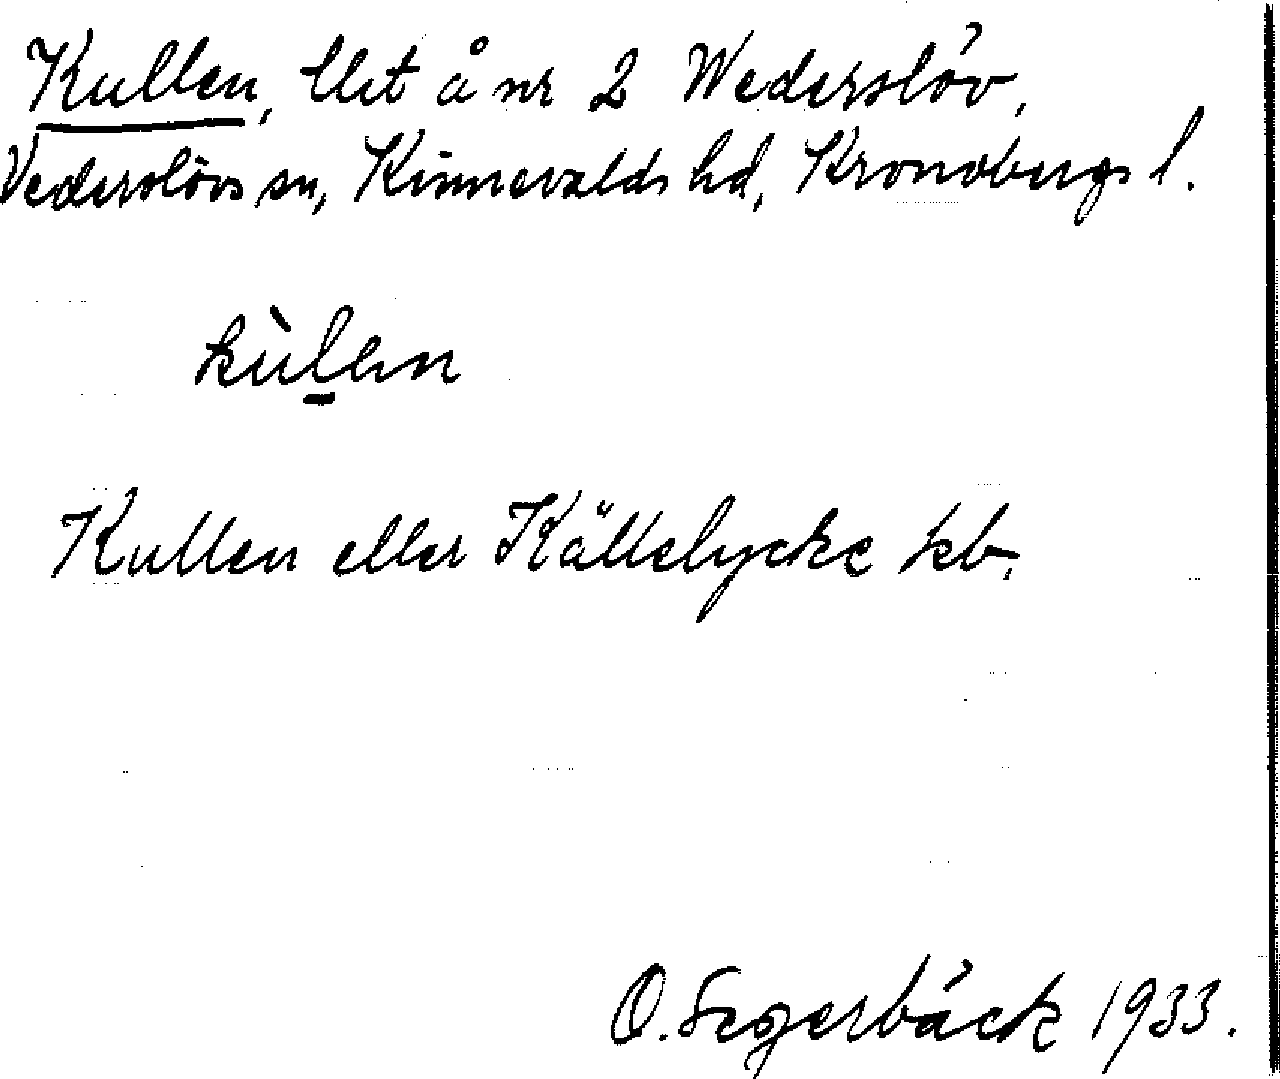 Kullen, lht å nr 2 Wederslöv,
Vederslövs sn, Kinnevalds hd, Kronobergs l.
kùl̠en
Kullen eller Källelycke kb.
O. Segerbäck 1933.